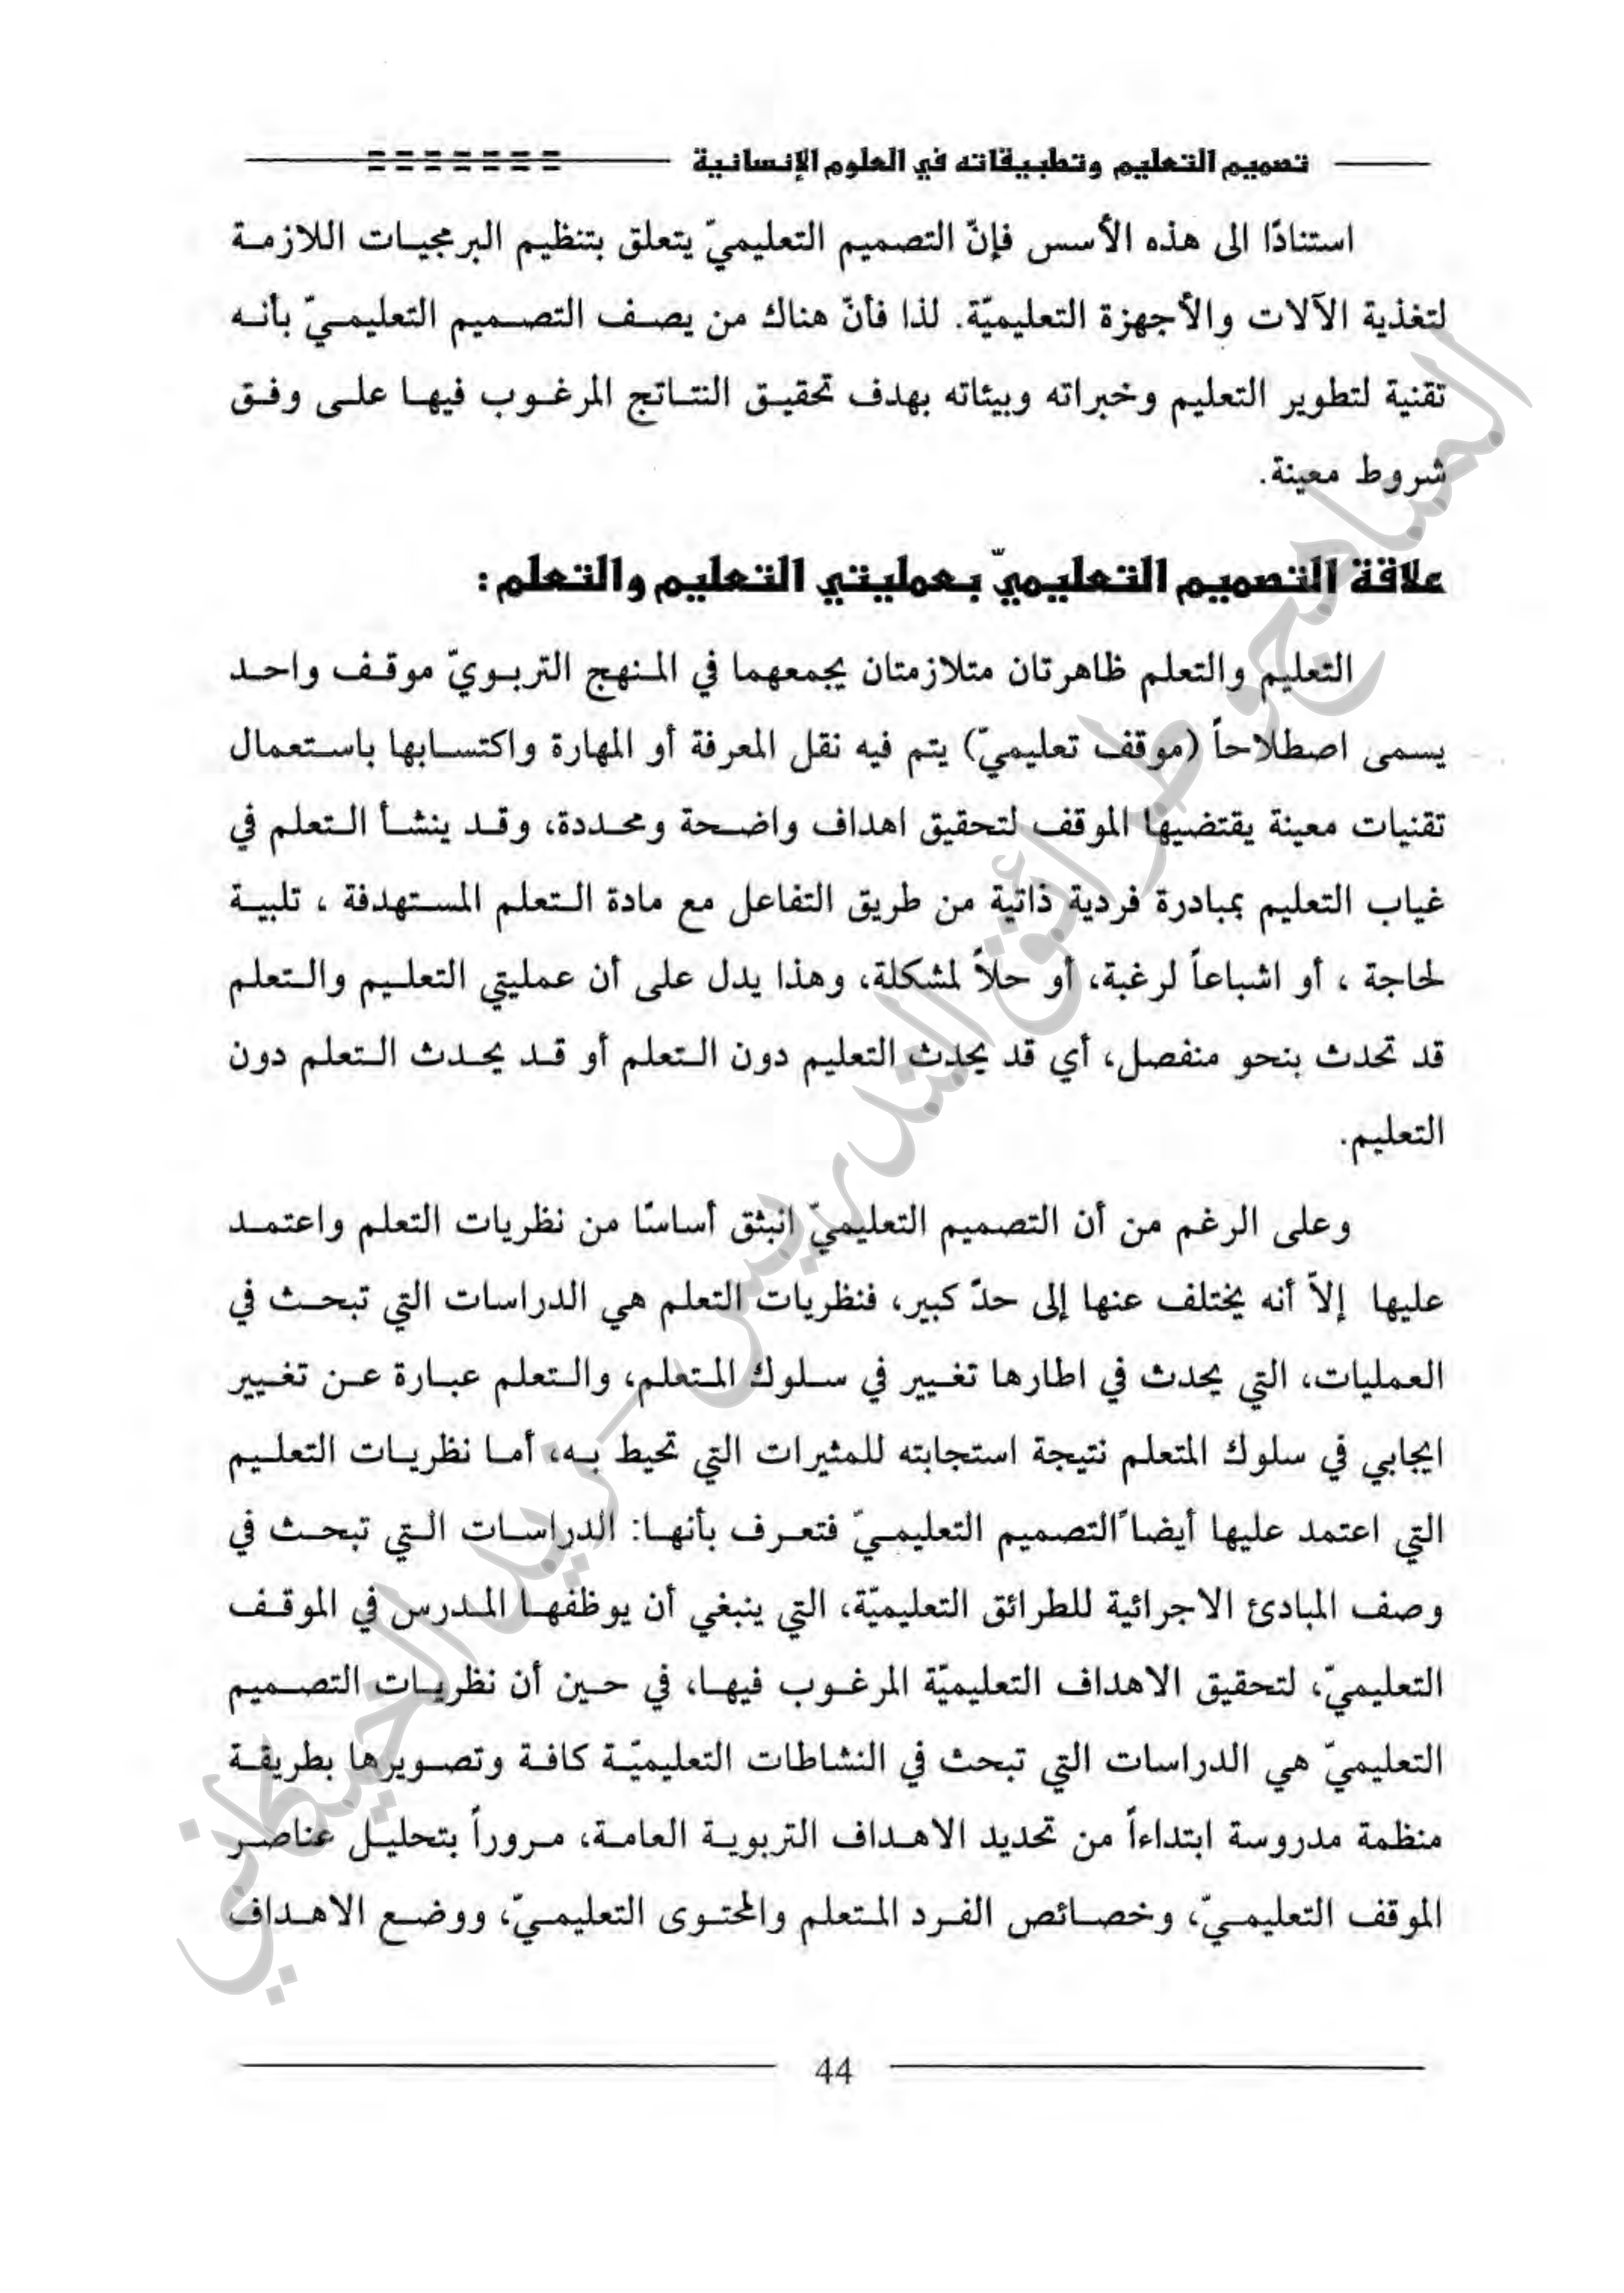 تصميم التعليم وتطبيقاته في العلوم الإنسانية
استنادًا الى هذه الأسس فإنّ التصميم التعليميّ يتعلق بتنظيم البرمجيات اللازمة
لتغذية الآلات والأجهزة التعليميّة. لذا فأنّ هناك من يصف التصميم التعليميّ بأنه
تقنية لتطوير التعليم وخبراته وبيئاته بهدف تحقيق النتاتج المرغوب فيها على وفق
شروط معينة.
علاقة التصميم التعليميّ بعمليتي التعليم والتعلم:
التعليم والتعلم ظاهرتان متلازمتان يجمعهما في المنهج التربويّ موقف واحد
يسمى اصطلاحاً (موقف تعليميّ) يتم فيه نقل المعرفة أو المهارة واكتسابها باستعمال
تقنيات معينة يقتضيها الموقف لتحقيق اهداف واضحة ومحددة، وقد ينشأ التعلم في
غياب التعليم بمبادرة فردية ذاتية من طريق التفاعل مع مادة التعلم المستهدفة ، تلبية
لحاجة ، أو اشباعاً لرغبة، أو حلاً لمشكلة، وهذا يدل على أن عمليتي التعليم والتعلم
قد تحدث بنحو منفصل، أي قد يحدث التعليم دون التعلم أو قد يحدث التعلم دون
التعليم.
وعلى الرغم من أن التصميم التعليميّ انبثق أساسًا من نظريات التعلم واعتمد
عليها إلاّ أنه يختلف عنها إلى حدّ كبير، فنظريات التعلم هي الدراسات التي تبحث في
العمليات، التي يحدث في اطارها تغيير في سلوك المتعلم، والتعلم عبارة عن تغيير
ايجابي في سلوك المتعلم نتيجة استجابته للمثيرات التي تحيط به، أما نظريات التعليم
التي اعتمد عليها أيضاً التصميم التعليميّ فتعرف بأنها: الدراسات التي تبحث في
وصف المبادئ الاجرائية للطرائق التعليميّة، التي ينبغي أن يوظفها المدرس في الموقف
التعليميّ، لتحقيق الاهداف التعليميّة المرغوب فيها، في حين أن نظريات التصميم
التعليميّ هي الدراسات التي تبحث في النشاطات التعليميّة كافة وتصويرها بطريقة
منظمة مدروسة ابتداءاً من تحديد الاهداف التربوية العامة، مروراً بتحليل عناصر
الموقف التعليميّ، وخصائص الفرد المتعلم والمحتوى التعليميّ، ووضع الاهداف
44
المناهج وطرائق التدريس – ريد الخيكاني